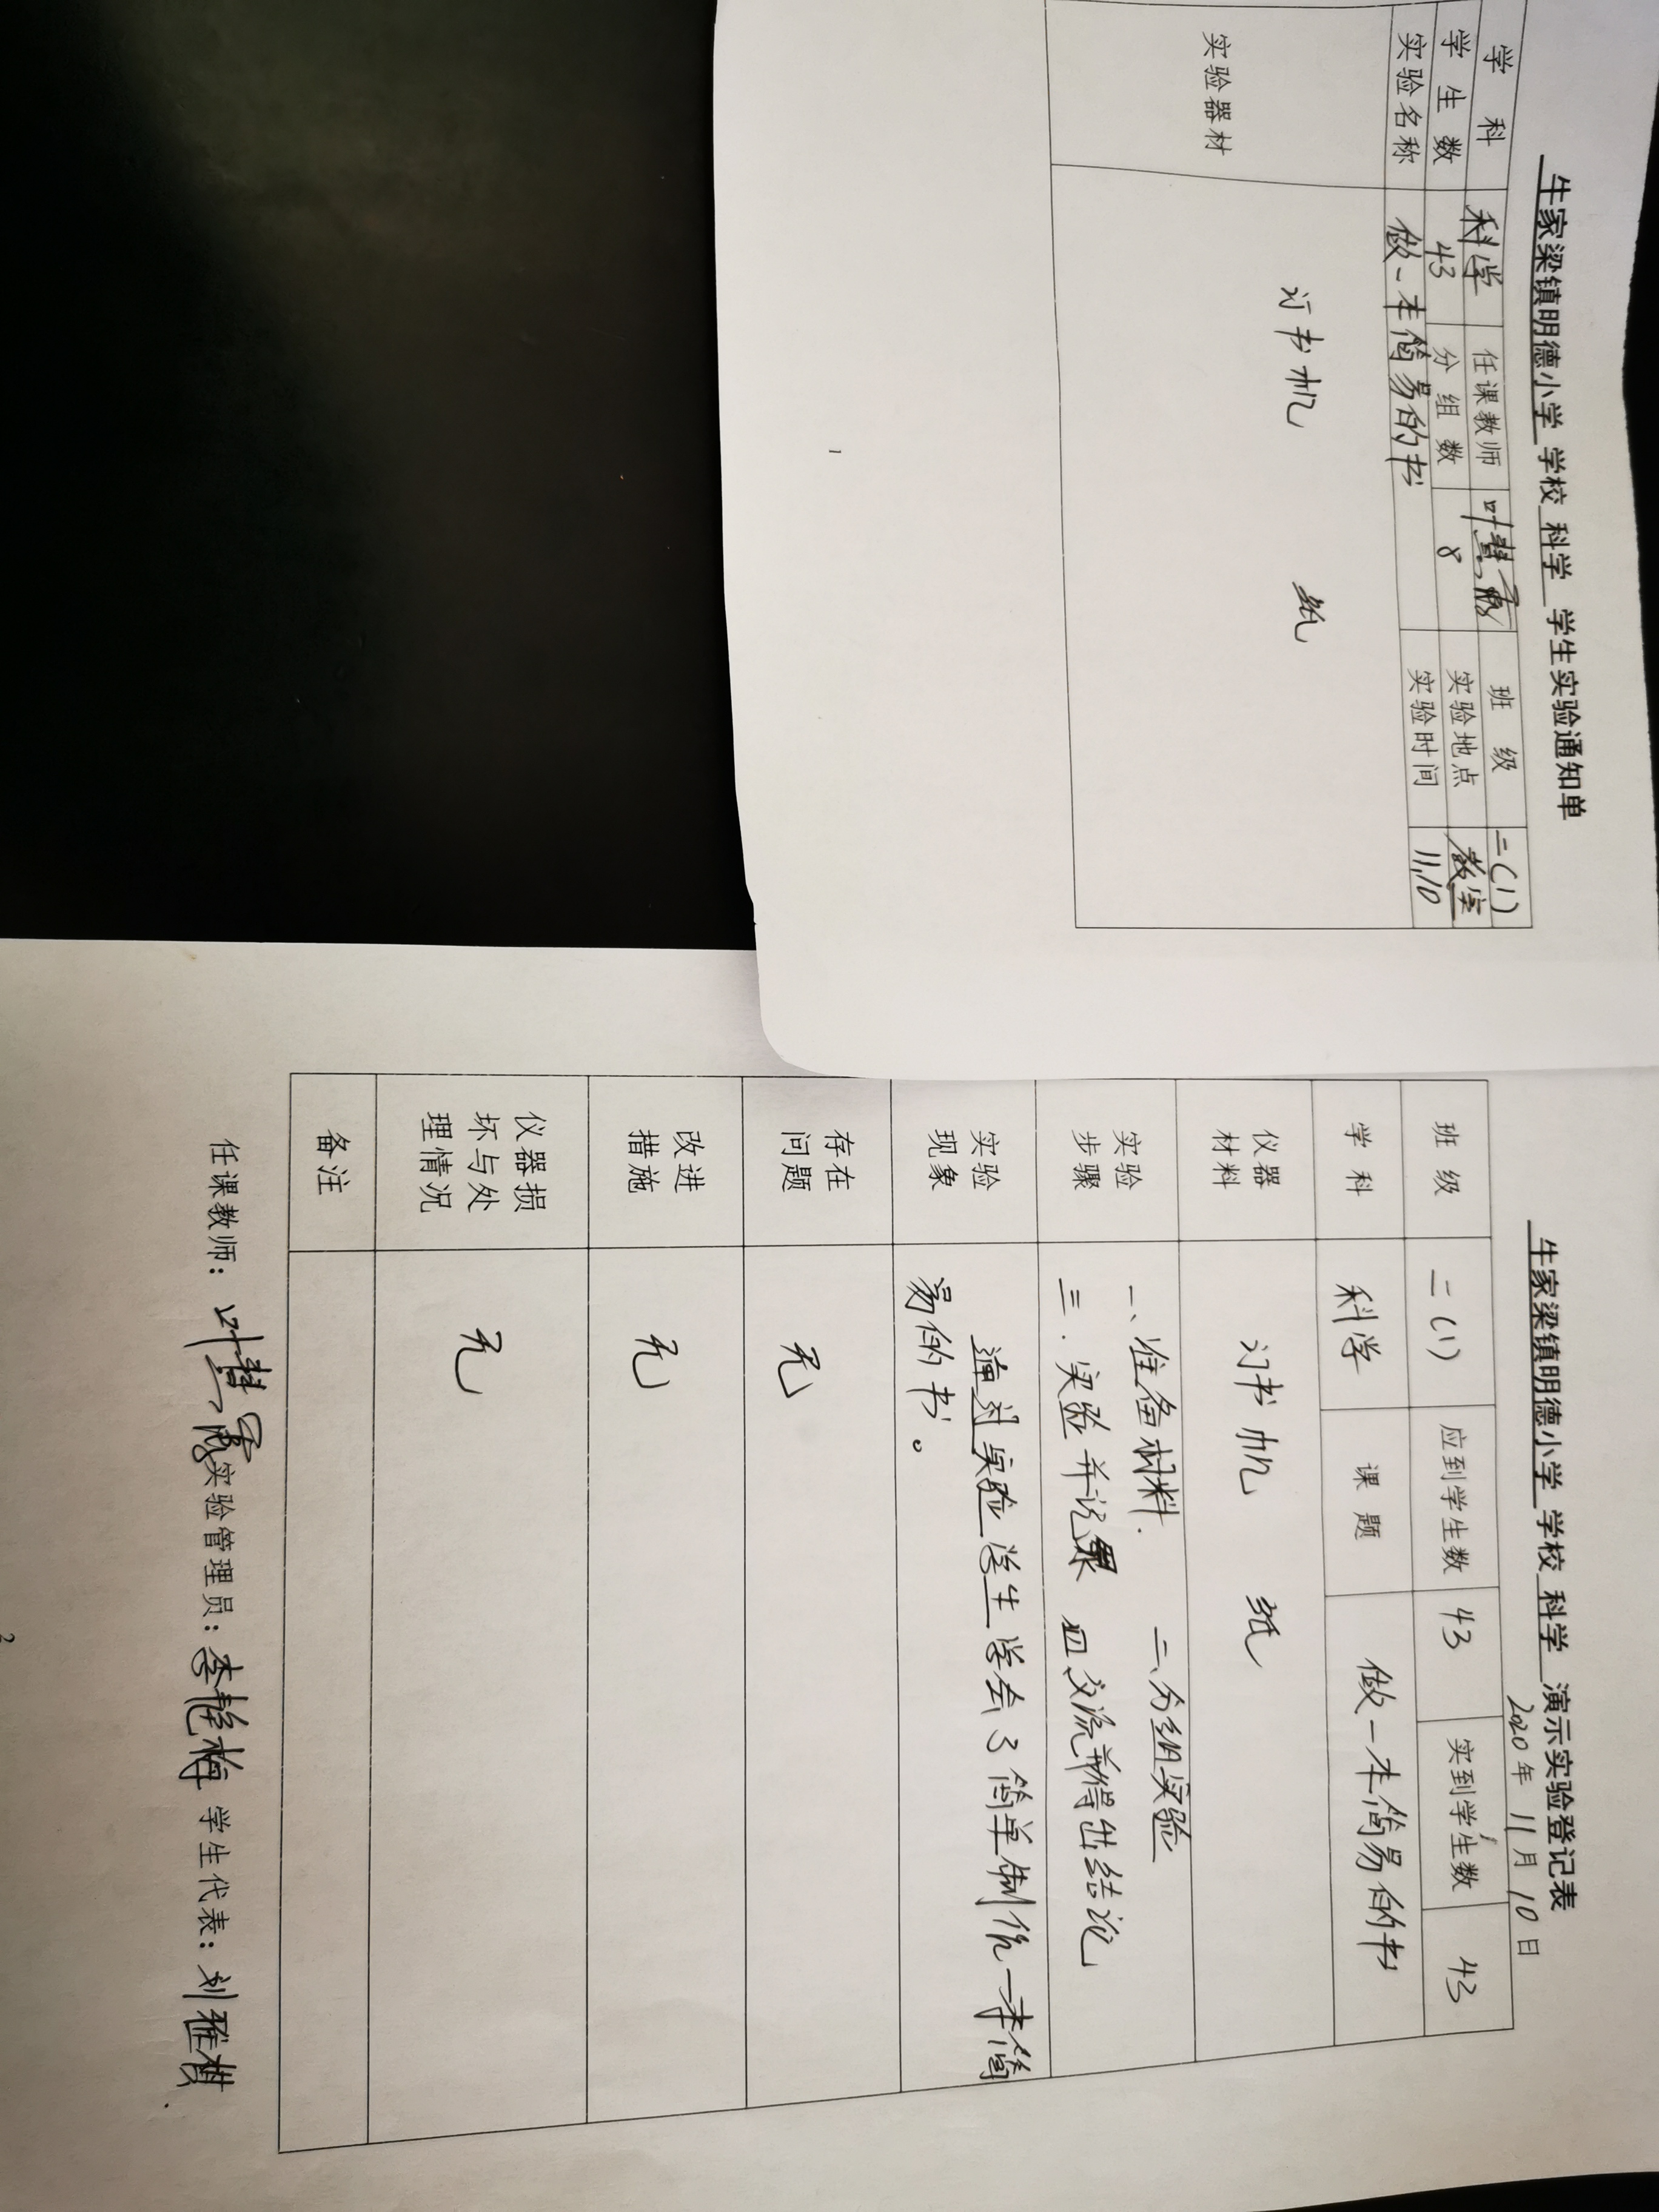 牛家梁镇明德小学 学校 科学 学生实验通知单
学科 科学 任课教师 叶慧霞 班级 二(1)
学生数 43 分组数 8 实验地点 教室
实验名称 做一本简易的书 实验时间 11.10
实验器材 订书机 纸
1
牛家梁镇明德小学 学校 科学 演示实验登记表
2020年11月10日
班级 二(1) 应到学生数 43 实到学生数 43
学科 科学 课题 做一本简易的书
仪器材料 订书机 纸
实验步骤 一、准备材料. 二、分组实验
三.实验并记录 四交流并得出结论
实验现象 通过实验学生学会了简单制作一本简
易的书。
存在问题 无
改进措施 无
仪器损坏与处理情况 无
备注
任课教师: 叶慧霞 实验管理员: 李艳梅 学生代表: 刘雅
2